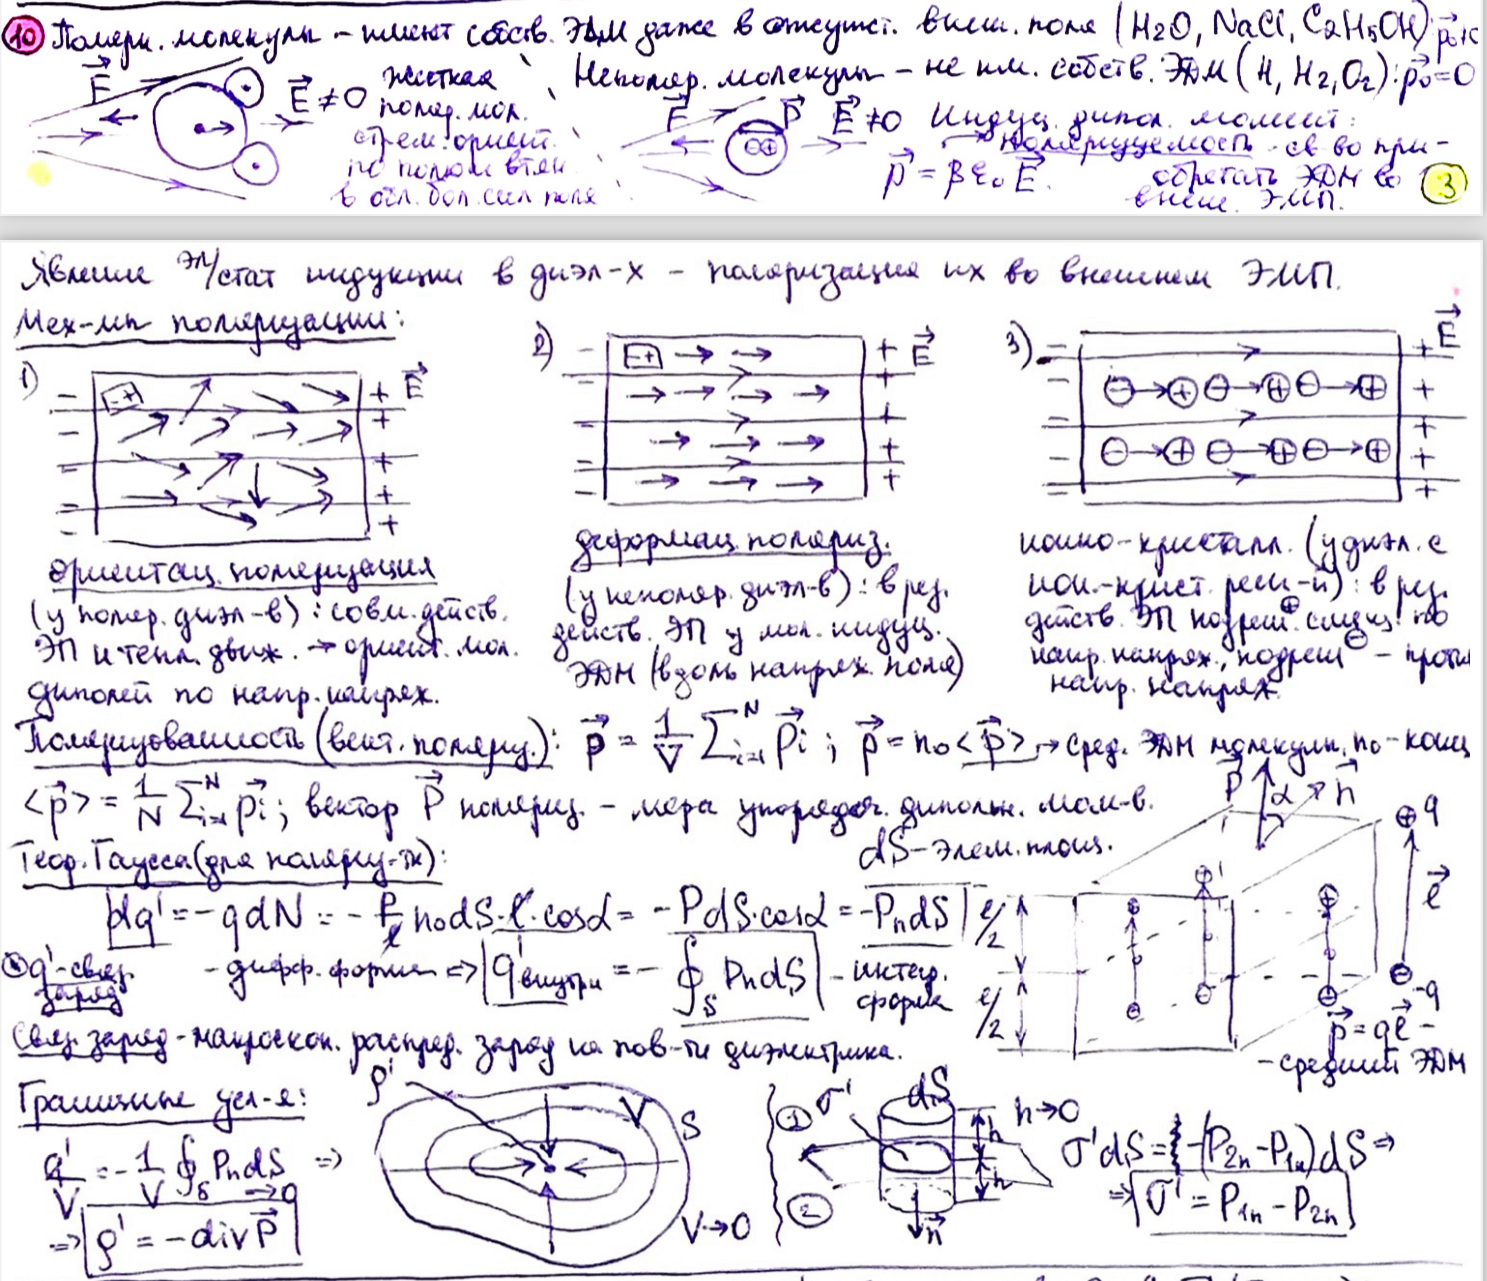 10 Полярн. молекулы – имеют собств. ЭДМ даже в отсутст. внеш. поля (H₂O, NaCl, C₂H₅OH): p₀≠0
E⃗ E⃗≠0 жёсткая поляр. мол. стрем. ориент. по полю и втян. в обл. бол. сил. поля
Неполяр. молекулы – не им. собств. ЭДМ (H, H₂, O₂): p⃗₀=0
E⃗ p⃗ E⃗≠0 Индуц. дипол. момент:
p⃗ = βε₀E⃗.
поляризуемость – св-во приобретать ЭДМ во внеш. ЭМП.
3
Явление эл/стат индукции в диэл-х – поляризация их во внешнем ЭМП.
Мех-мы поляризации:
1) – + E⃗
2) – + E⃗
3) – + E⃗
ориентац. поляризация
(у поляр. диэл-в): совм. действ.
ЭП и тепл. движ. → ориент. мол.
диполей по напр. напряж.
деформац. поляриз.
(у неполяр. диэл-в): в рез.
действ. ЭП у мол. индуц.
ЭДМ (вдоль напряж. поля)
ионно-кристалл. (у диэл. с
ион.-крист. реш-й): в рез.
действ. ЭП подреш.⊕ смещ. по
напр. напряж., подреш⊖ – против
напр. напряж.
Поляризованность (вект. поляриз.): P⃗ = 1/V Σᵢ₌₁ᴺ p⃗ᵢ ; p⃗ = n₀<p⃗> → сред. ЭДМ молекулы, n₀ – конц
<p⃗> = 1/N Σᵢ₌₁ᴺ p⃗ᵢ ; вектор P⃗ поляриз. – мера упорядоч. дипольн. мом-в.
Теор. Гаусса (для поляриз-ти):
dS – элем. площ.
dq' = –qdN = –p/l n₀dS·l·cosα = –PdS·cosα = –PₙdS
q' – связ. заряд
– дифф. форма => q'внутри = –∮ₛ PₙdS – интегр. форма
Связ. заряд – макроскоп. распред. заряд на пов-ти диэлектрика.
P⃗ α n⃗
⊕ q
l⃗
⊖ –q
l/2
l/2
p⃗ = ql⃗ –
– средний ЭДМ
Граничные усл-я:
q'/V = –1/V ∮ₛ PₙdS =>
V→0
=> ρ' = –divP⃗
ρ' V S
V→0
1 σ' dS h→0
h
h
2 n⃗
σ'dS = –(P₂ₙ–P₁ₙ)dS =>
=> σ' = P₁ₙ – P₂ₙ